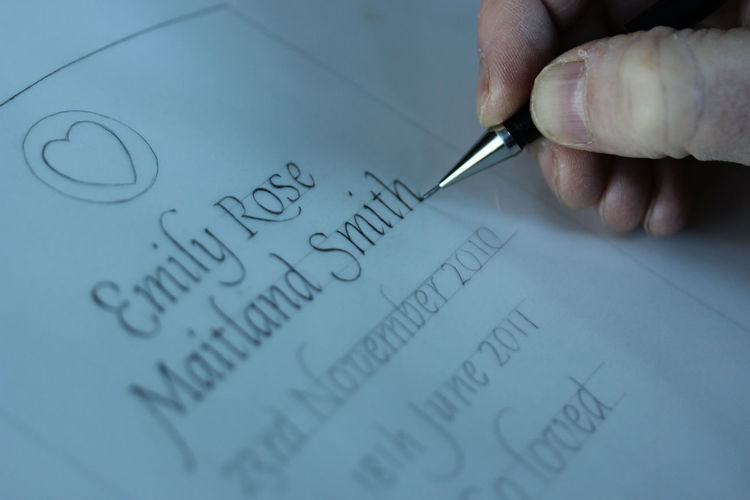 Emily Rose
Maitland Smith
23rd November 2010
18th June 2011
So loved